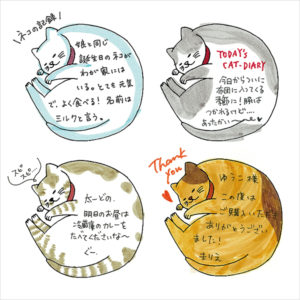 ネコの記録!
娘と同じ
誕生日のネコが
わが家には
いる。とても元気
で、よく食べる! 名前は
ミルクと言う。
TODAY'S
CAT-DIARY
今日からついに
布団に入ってくる
季節に!腕は
つかれるけど…
あったかい〜
スピ
スピ
太一どの、
明日のお昼は
冷蔵庫のカレーを
たべてくださいな〜
ぐー。
Thank
You
ゆうこ様
この度は
ご購入いただき
ありがとうござい
ました!
まりえ